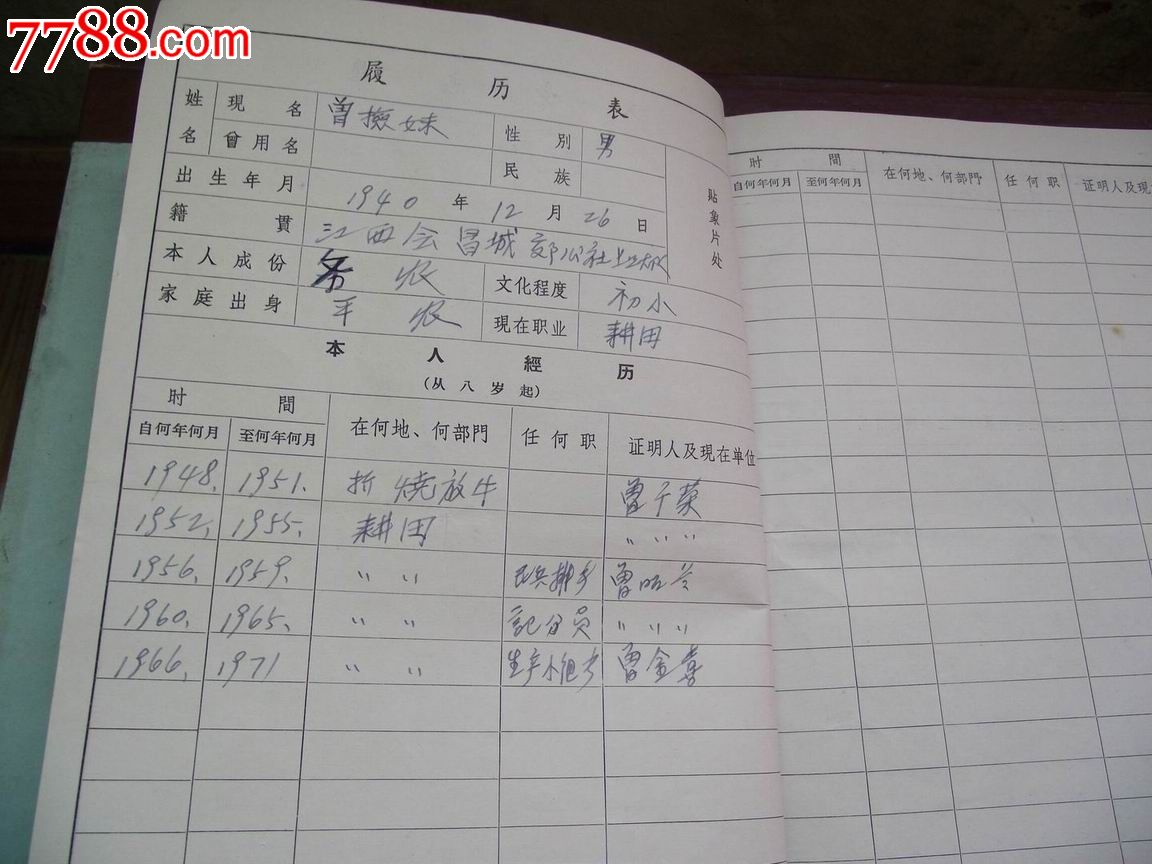 7788.com
履历表
姓名 現名 曾撿妹 性別 男
曾用名 民族
貼象片处
出生年月 1940 年 12 月 26 日
籍貫 江西会昌城郊公社
本人成份 农 文化程度 初小
家庭出身 农 現在职业 耕田
本人經历
(从八岁起)
时間 在何地、何部門 任何职 证明人及現在单位
自何年何月 至何年何月
1948. 1951. 折燒放牛 曾千荣
1952. 1955. 耕田 〃 〃 〃
1956. 1959. 〃 〃 民兵排长 曾昭兰
1960. 1965. 〃 〃 記分员 〃 〃 〃
1966. 1971 〃 〃 生产小组长 曾金喜
时間 在何地、何部門 任何职 证明人及現
自何年何月 至何年何月